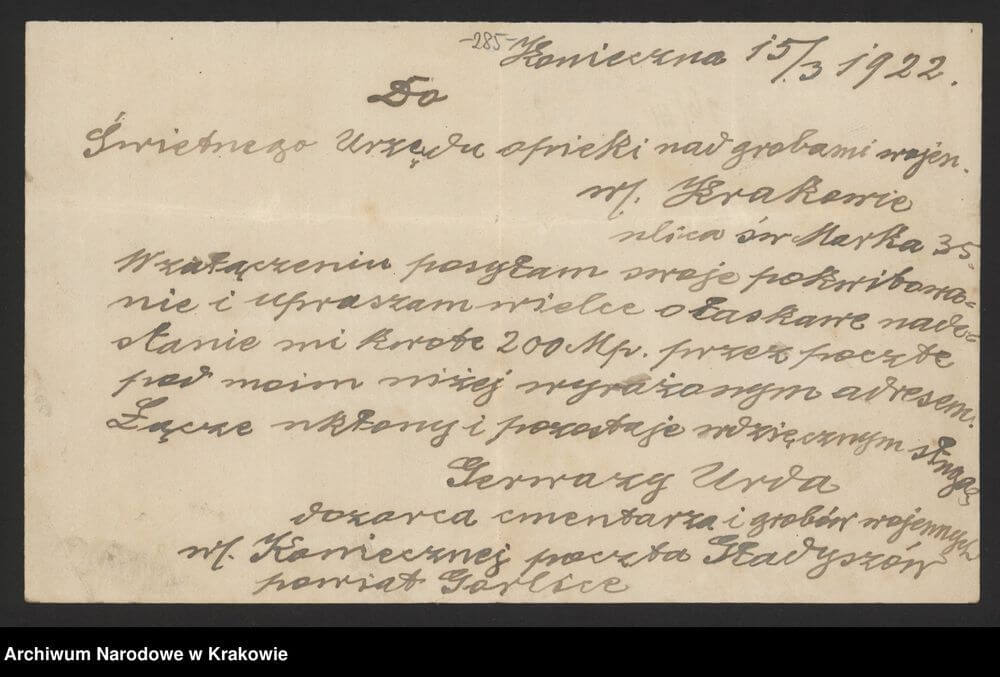 -285-
Konieczna 15/3 1922.
Do
Świetnego Urzędu opieki nad grobami wojen.
w/. Krakowie
ulica św Marka 35.
W załączeniu posyłam swoje pokwitowa=
nie i upraszam wielce o łaskawe nade=
słanie mi kwote 200 Mp. przez poczte
pod moim niżej wyrażonym adresem.
Łącze ukłony i pozostaje wdzięcznym sługą
Gerwazy Urda
dozorca cmentarza i grobów wojennych
w/. Koniecznej poczta Gładyszów
powiat Gorlice
Archiwum Narodowe w Krakowie